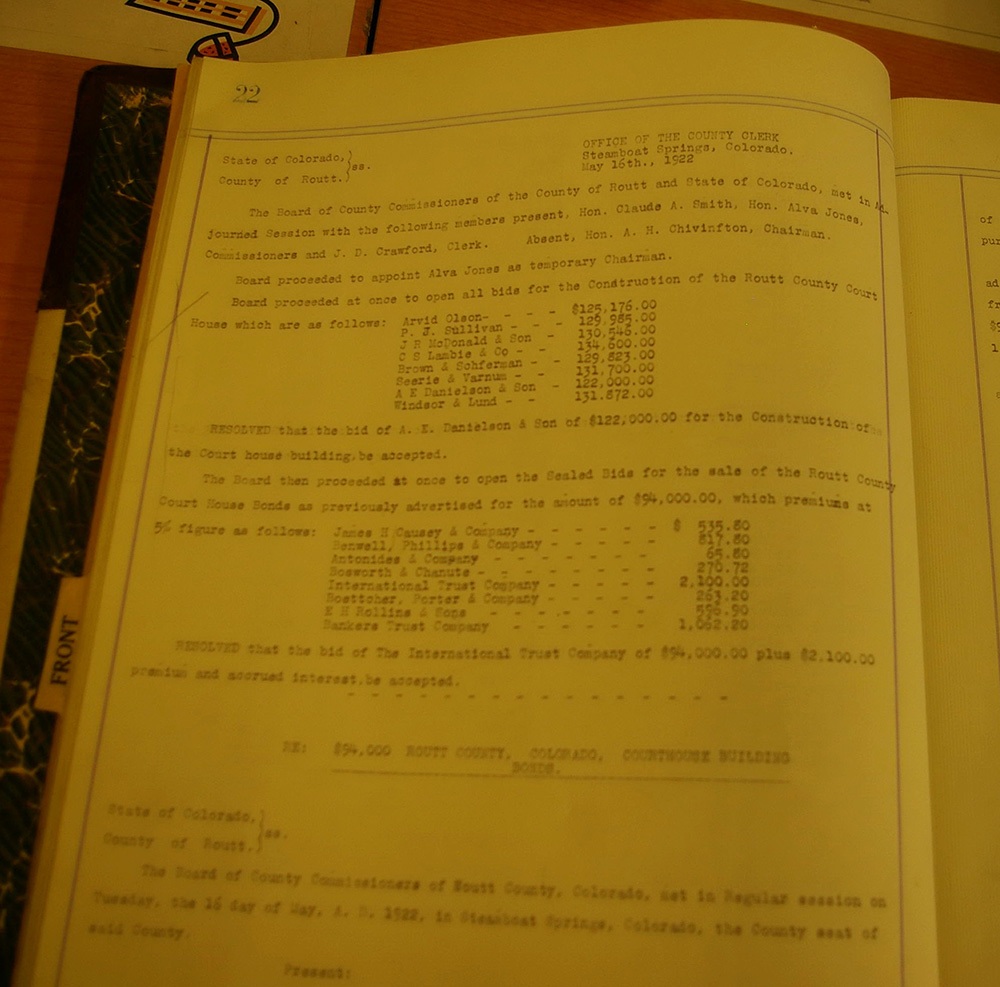 22
OFFICE OF THE COUNTY CLERK
Steamboat Springs, Colorado.
May 16th., 1922
State of Colorado,}
ss.
County of Routt.}
The Board of County Commissioners of the County of Routt and State of Colorado, met in Ad-
journed Session with the following members present, Hon. Claude A. Smith, Hon. Alva Jones,
Commissioners and J. D. Crawford, Clerk. Absent, Hon. A. H. Chivinfton, Chairman.
Board proceeded to appoint Alva Jones as temporary Chairman.
Board proceeded at once to open all bids for the Construction of the Routt County Court
House which are as follows: Arvid Olson- - - - $125,176.00
P. J. Sullivan - - - 129,985.00
J R McDonald & Son - 130,546.00
C S Lambie & Co - - 134,600.00
Brown & Schferman - - 129,823.00
Seerie & Varnum - - 131,700.00
A E Danielson & Son - 122,000.00
Windsor & Lund - - 131.872.00
RESOLVED that the bid of A. E. Danielson & Son of $122,000.00 for the Construction of
the Court house building,be accepted.
The Board then proceeded at once to open the Sealed Bids for the sale of the Routt County
Court House Bonds as previously advertised for the amount of $94,000.00, which premiums at
5% figure as follows: James H Causey & Company - - - - - - $ 535.80
Benwell, Phillips & Company - - - - - 817.80
Antonides & Company - - - - - - - 65.80
Bosworth & Chanute - - - - - - - 270.72
International Trust Company - - - - - 2,100.00
Boettcher, Porter & Company - - - - - 263.20
E H Rollins & Sons - - - - - - 596.90
Bankers Trust Company - - - - - - 1,062.20
RESOLVED that the bid of The International Trust Company of $94,000.00 plus $2,100.00
premium and accrued interest,be accepted.
- - - - - - - - - - - - - - - -
RE: $94,000 ROUTT COUNTY, COLORADO, COURTHOUSE BUILDING
BONDS.
State of Colorado,}
ss.
County of Routt.}
The Board of County Commissioners of Routt County, Colorado, met in Regular session on
Tuesday, the 16 day of May, A. D. 1922, in Steamboat Springs, Colorado, the County seat of
said County.
Present:
FRONT
of
pur
ad
fr
$9
1